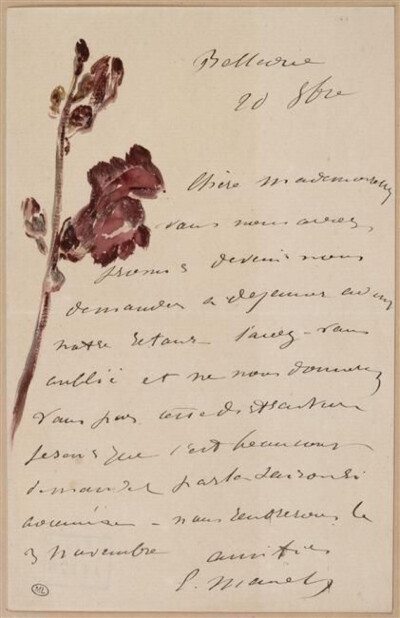 Bellevue
20 8bre
Chère mademoiselle
vous nous aviez
promis de venir nous
demander à déjeuner avant
notre retour l'avez-vous
oublié et ne nous donnerez
vous pas cette distraction
je sens que c'est beaucoup
demander par la saison si
avancée - nous rentrerons le
3 novembre amitiés
E. Manet
ML